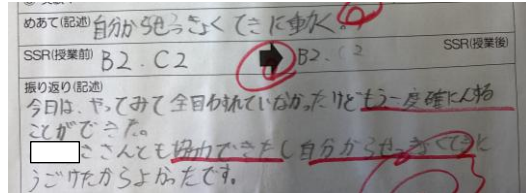 めあて(記述) 自分からせっきょくてきに動く。
SSR(授業前) B2.C2 B2.C2 SSR(授業後)
振り返り(記述)
今日は、やってみて全目われていなかったけどもう一度確にん する
ことができた。
さんとも協力できたし自分からせっきょくてきに
うごけたからよかったです。